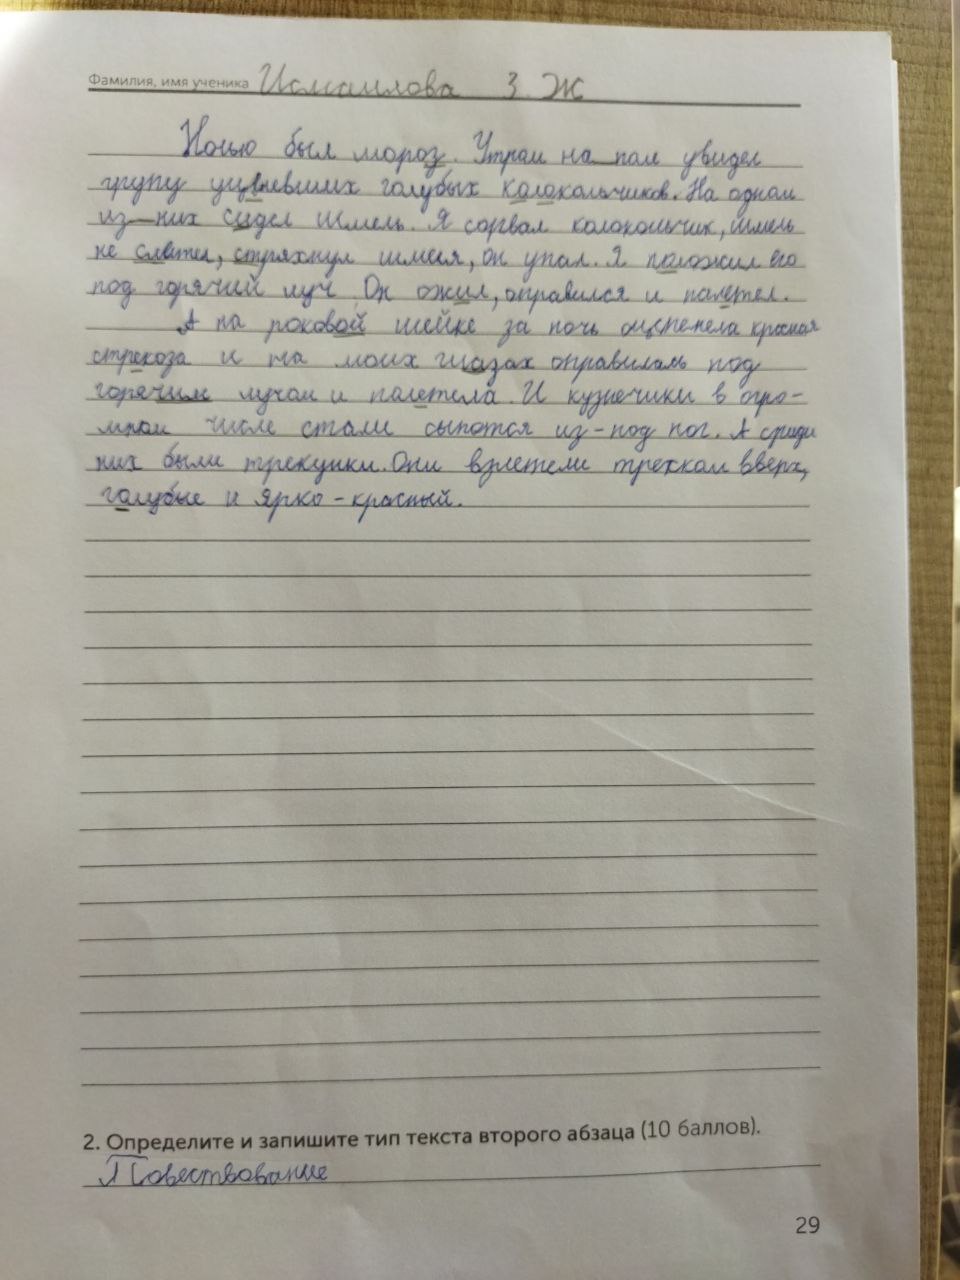 Фамилия, имя ученика Исмаилова 3 Ж
Ночью был мороз. Утрам на поле увидел
групу уцелевших голубых колокольчиков. На одном
из них сидел шмель. Я сорвал колокольчик, шмель
не слетел, стряхнул шмеля, он упал. Я положил его
под горячий луч. Он ожил, оправился и палетел.
А на роковой шейке за ночь оцепенела красная
стрекоза и на моих глазах оправилась под
горячим лучом и палетела. И кузнечики в огро-
мном числе стали сыпотся из-под ног. А среди
них были трекунки. Они взлетели треском вверх,
голубые и ярко-красный.
2. Определите и запишите тип текста второго абзаца (10 баллов).
Повествование
29